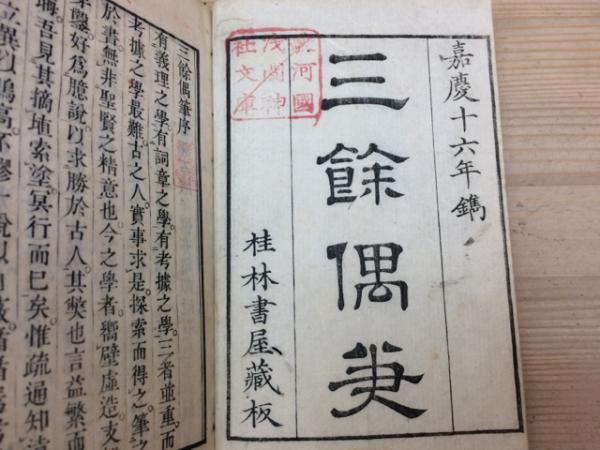 嘉慶十六年鐫
三餘偶筆
桂林書屋藏板
駿河國
浅間神
社文庫
三餘偶筆序
有義理之學有詞章之學有考據之學三者並重而
考據之學最難古之人實事求是探索而得之筆之
於書無非聖賢之精意也今之學者嚮壁虛造支
好為臆說以求勝於古人其獘也言益繁而
吾見其摘埴索塗冥行而已矣惟疏通知
立異以鳴高